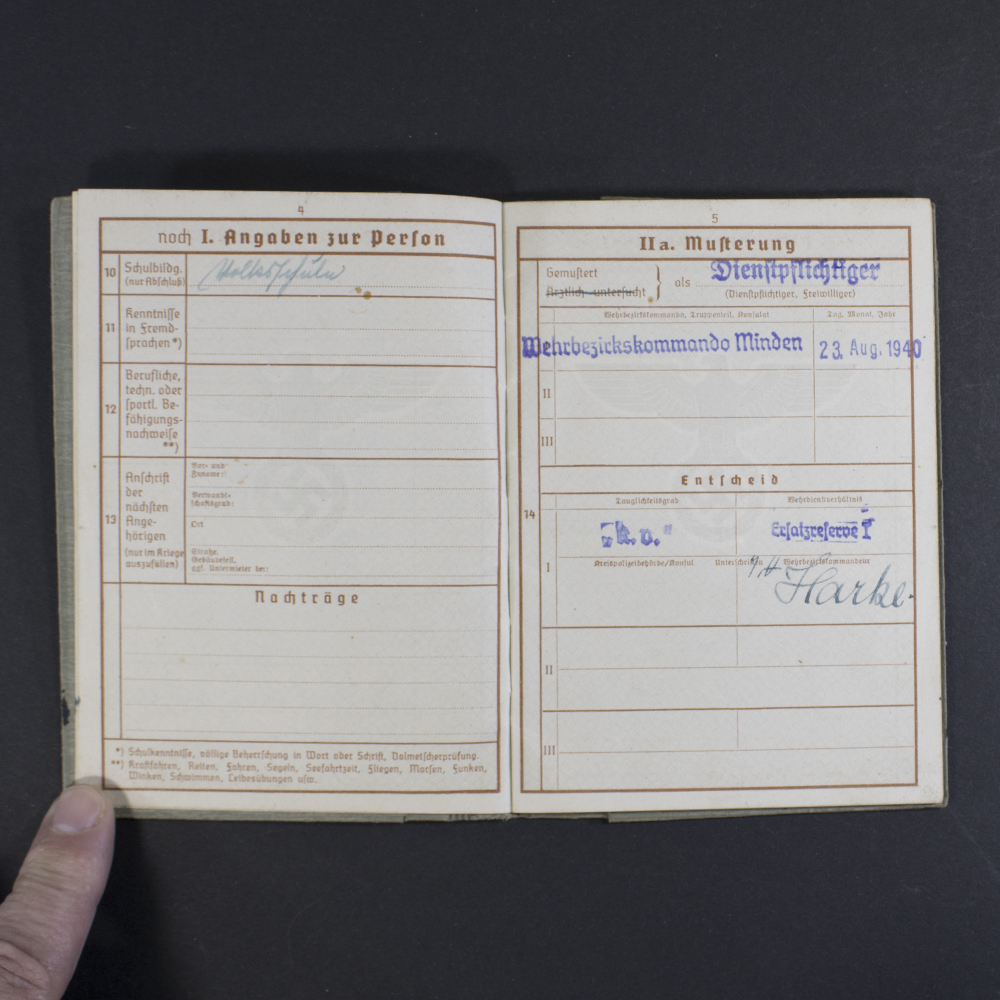 4
noch I. Angaben zur Person
10 Schulbildg. Volksschule
(nur Abschluß)
11 Kenntnisse
in Fremd-
sprachen *)
12 Berufliche,
techn. oder
sportl. Be-
fähigungs-
nachweise
**)
13 Anschrift
der
nächsten
Ange-
hörigen
(nur im Kriege
auszufüllen)
Vor- und
Zuname:
Verwandt-
schaftsgrad:
Ort
Straße,
Gebäudeteil,
ggf. Untermieter bei:
Nachträge
*) Schulkenntnisse, völlige Beherrschung in Wort oder Schrift, Dolmetscherprüfung.
**) Kraftfahren, Reiten, Fahren, Segeln, Seefahrtzeit, Fliegen, Morsen, Funken,
Winken, Schwimmen, Leibesübungen usw.
5
II a. Musterung
Gemustert
Ärztlich untersucht
} als Dienstpflichtiger
(Dienstpflichtiger, Freiwilliger)
Wehrbezirkskommando, Truppenteil, Konsulat Tag, Monat, Jahr
Wehrbezirkskommando Minden 23. Aug. 1940
II
III
Entscheid
14
Tauglichkeitsgrad Wehrdienstverhältnis
„k.v.“ Ersatzreserve I
I Kreispolizeibehörde/Konsul Unterschriften Wehrbezirkskommandeur
Harke.
II
III